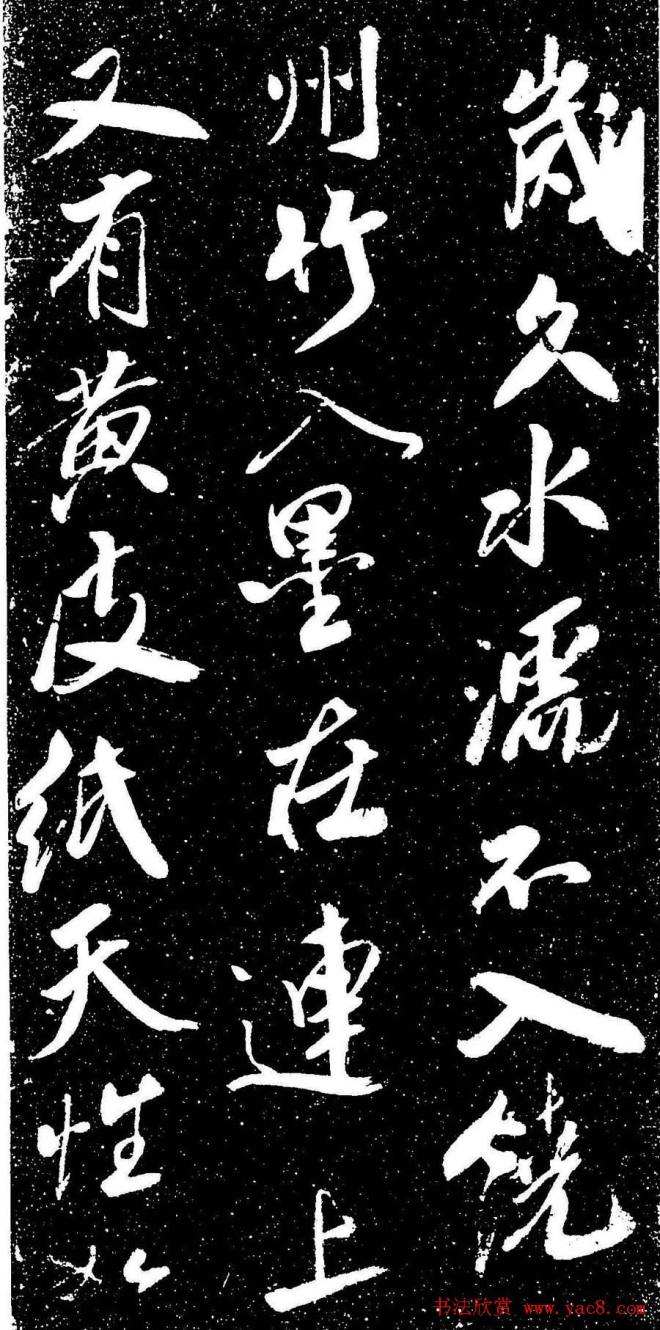 歲久水濡不入饒
州竹入墨在連上
又有黄皮紙天性
书法欣赏 www.yac8.com